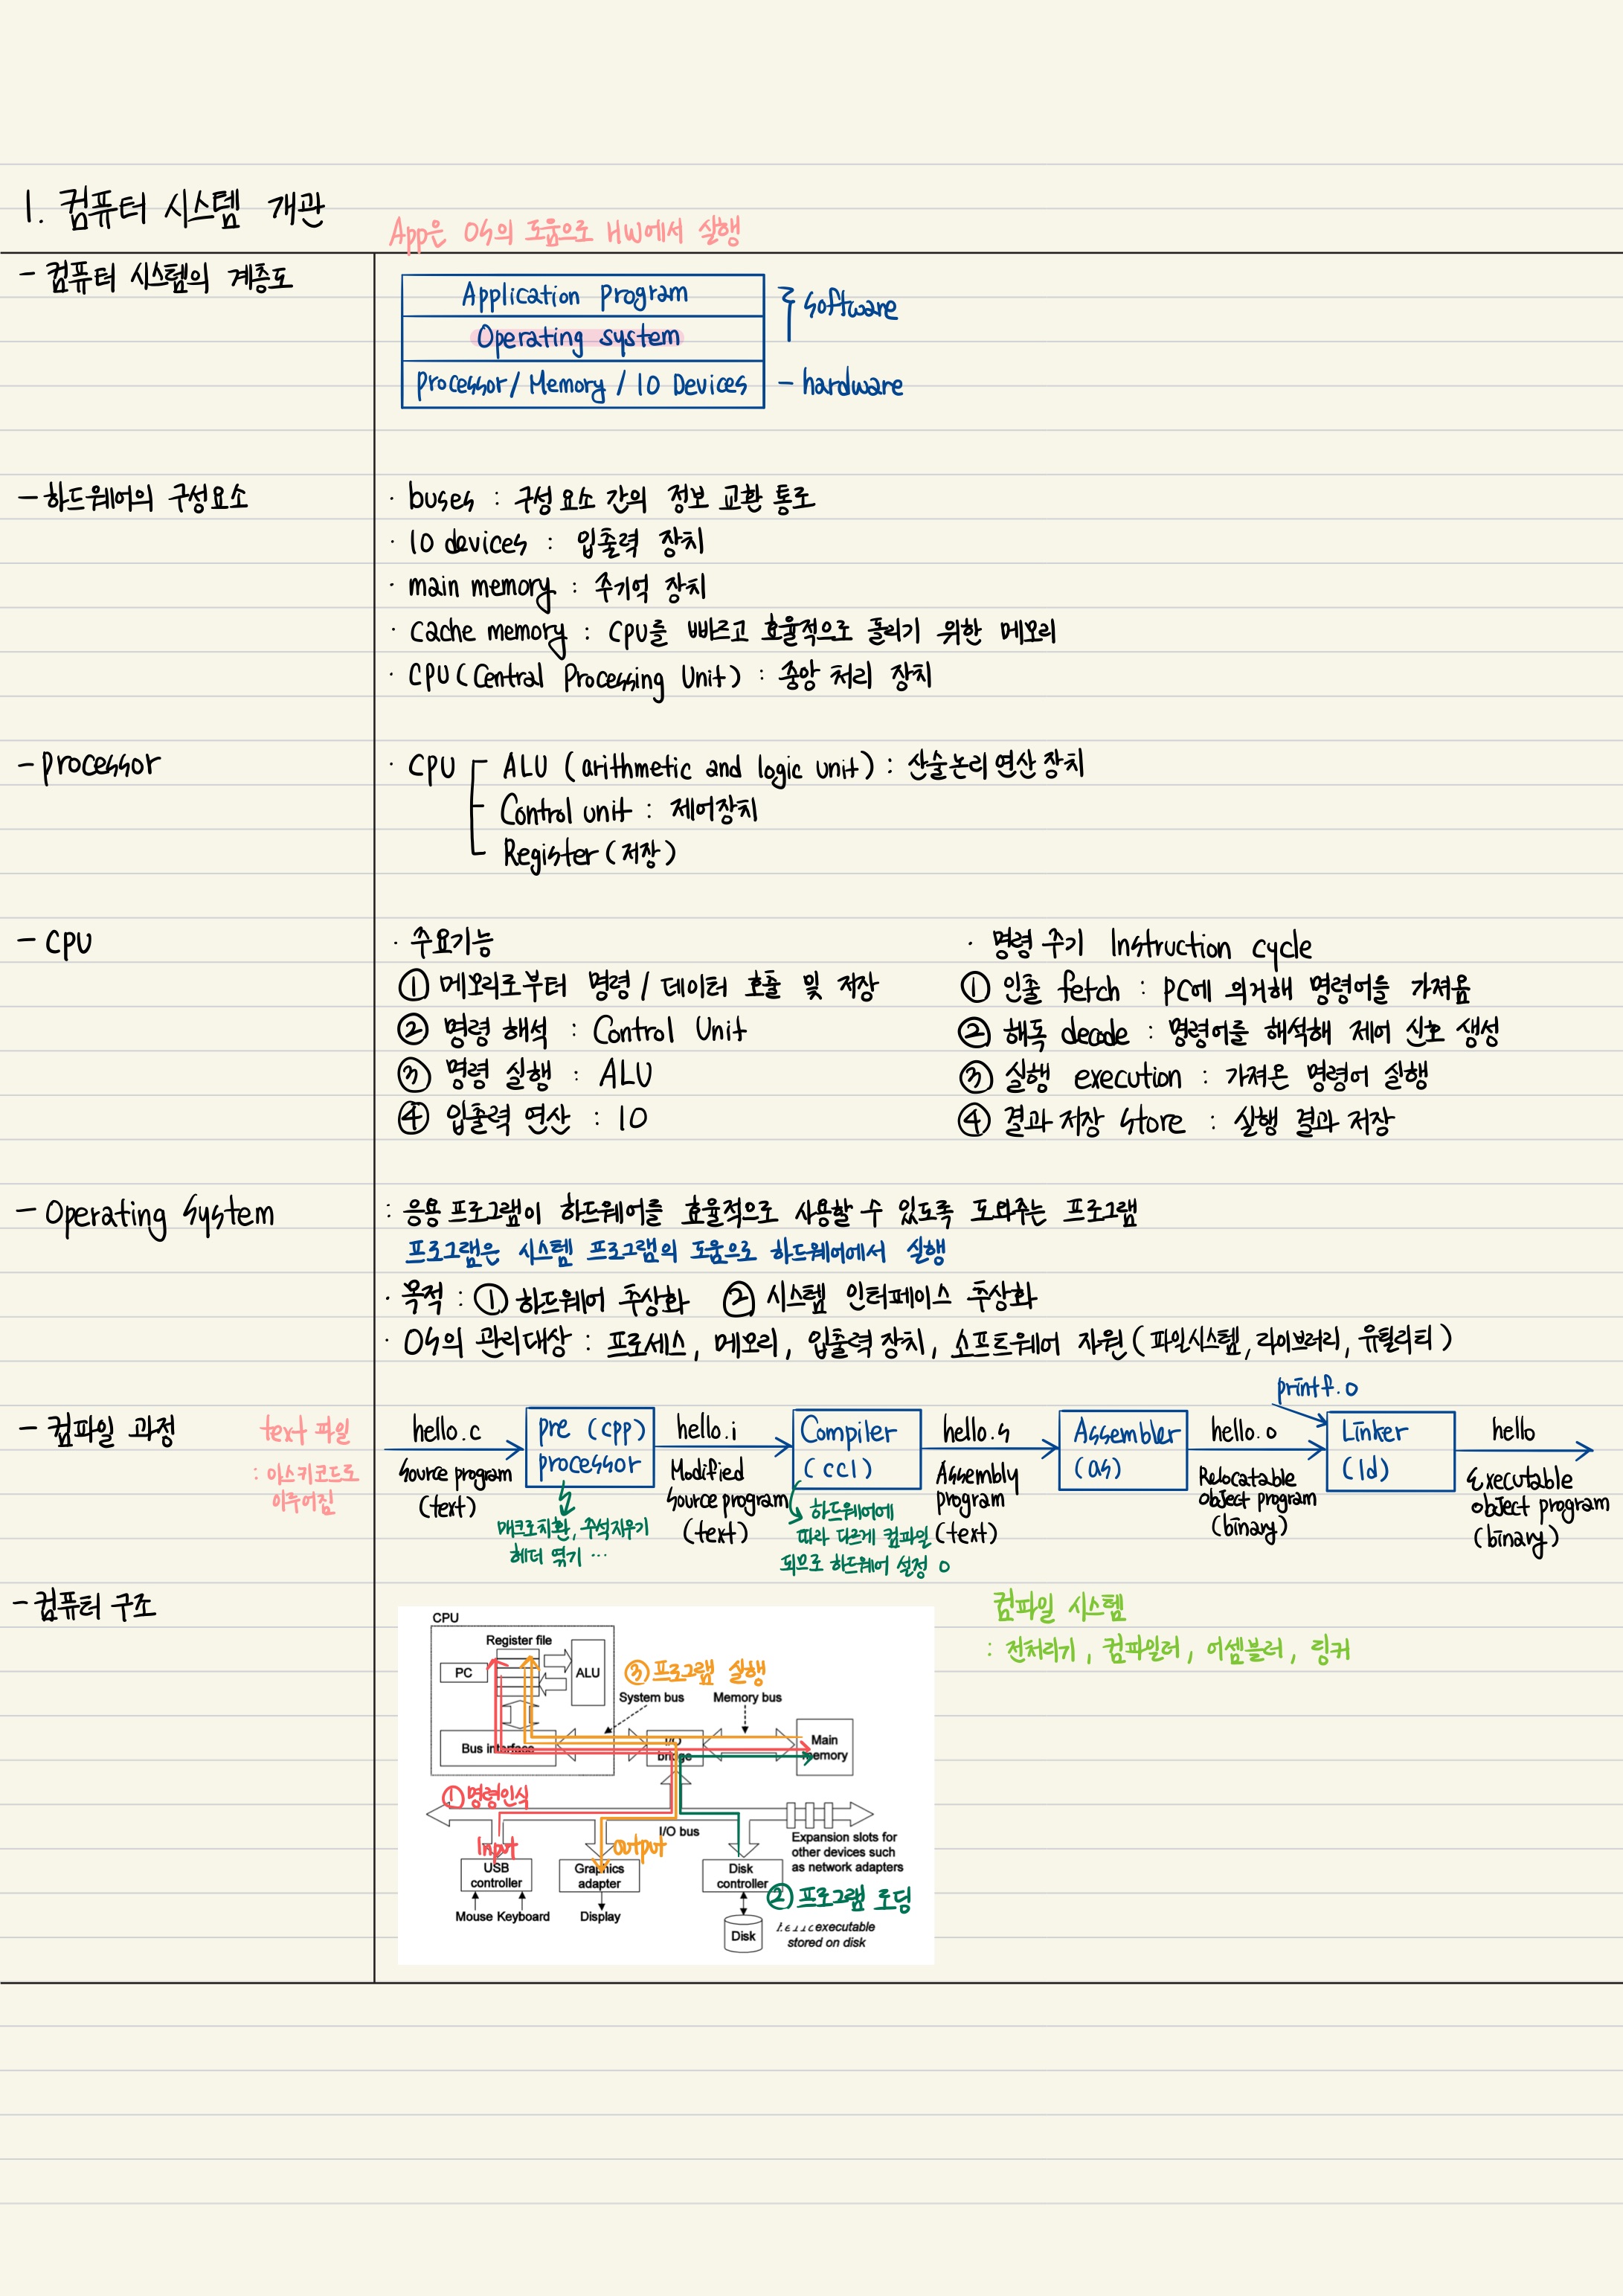 1. 컴퓨터 시스템 개관
App은 OS의 도움으로 HW에서 실행
- 컴퓨터 시스템의 계층도
Application Program
Operating system
processor / Memory / IO Devices
software
- hardware
- 하드웨어의 구성요소
· buses : 구성 요소 간의 정보 교환 통로
· IO devices : 입출력 장치
· main memory : 주기억 장치
· cache memory : CPU를 빠르고 효율적으로 돌리기 위한 메모리
· CPU (Central Processing Unit) : 중앙 처리 장치
- processor
· CPU
ALU (arithmetic and logic unit) : 산술논리 연산 장치
Control unit : 제어장치
Register (저장)
- CPU
· 주요기능
① 메모리로부터 명령 / 데이터 호출 및 저장
② 명령 해석 : Control Unit
③ 명령 실행 : ALU
④ 입출력 연산 : IO
· 명령 주기 Instruction cycle
① 인출 fetch : PC에 의거해 명령어를 가져옴
② 해독 decode : 명령어를 해석해 제어 신호 생성
③ 실행 execution : 가져온 명령어 실행
④ 결과 저장 store : 실행 결과 저장
- Operating System
: 응용 프로그램이 하드웨어를 효율적으로 사용할 수 있도록 도와주는 프로그램
프로그램은 시스템 프로그램의 도움으로 하드웨어에서 실행
· 목적 : ① 하드웨어 추상화 ② 시스템 인터페이스 추상화
· OS의 관리대상 : 프로세스, 메모리, 입출력 장치, 소프트웨어 자원 (파일시스템, 라이브러리, 유틸리티)
- 컴파일 과정
text 파일
: 아스키코드로
이루어짐
hello.c
source program
(text)
pre (cpp)
processor
매크로치환, 주석지우기
헤더 엮기 ...
hello.i
Modified
source program
(text)
Compiler
(cc1)
하드웨어에
따라 다르게 컴파일
되므로 하드웨어 설정 O
hello.s
Assembly
program
(text)
Assembler
(as)
hello.o
Relocatable
object program
(binary)
printf.o
Linker
(ld)
hello
Executable
object program
(binary)
- 컴퓨터 구조
컴파일 시스템
: 전처리기, 컴파일러, 어셈블러, 링커
CPU
Register file
PC
ALU
③ 프로그램 실행
System bus
Memory bus
Bus interface
I/O
bridge
Main
memory
① 명령인식
Input
output
I/O bus
Expansion slots for
other devices such
as network adapters
USB
controller
Graphics
adapter
Disk
controller
② 프로그램 로딩
Mouse Keyboard
Display
Disk
executable
stored on disk